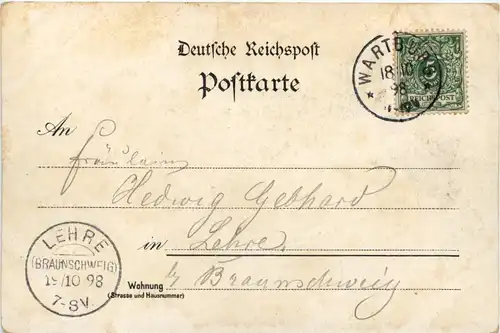 Deutsche Reichspost
Postkarte
WARTBURG
18/10
98
5
REICHSPOST
An
Fräulein
Hedwig Gebhard
in Lehre
b/ Braunschweig
Wohnung
(Strasse und Hausnummer)
LEHRE
(BRAUNSCHWEIG)
19/10 98
7-8V.